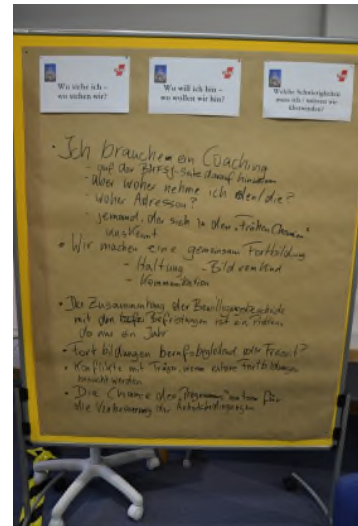 Wo stehe ich –
wo stehen wir?
Wo will ich hin –
wo wollen wir hin?
Welche Schwierigkeiten
muss ich / müssen wir
überwinden?
• Ich brauche ein Coaching
- auf der Seite darauf hinweisen
- aber woher nehme ich den/die?
- woher Adressen?
- jemand, der sich in den „Frühen Chancen"
auskennt
• Wir machen eine gemeinsam Fortbildung
- Haltung - Bild vom Kind
- Kommunikation
• Der Zusammenhang der
mit den Befristungen ist ein
da nur ein Jahr
• Fortbildungen berufsbegleitend oder Freizeit?
• Konflikte mit Träger, wenn externe Fortbildungen
besucht werden
• Die Chance des „Programms" nutzen für
die Verbesserung der Arbeitsbedingungen